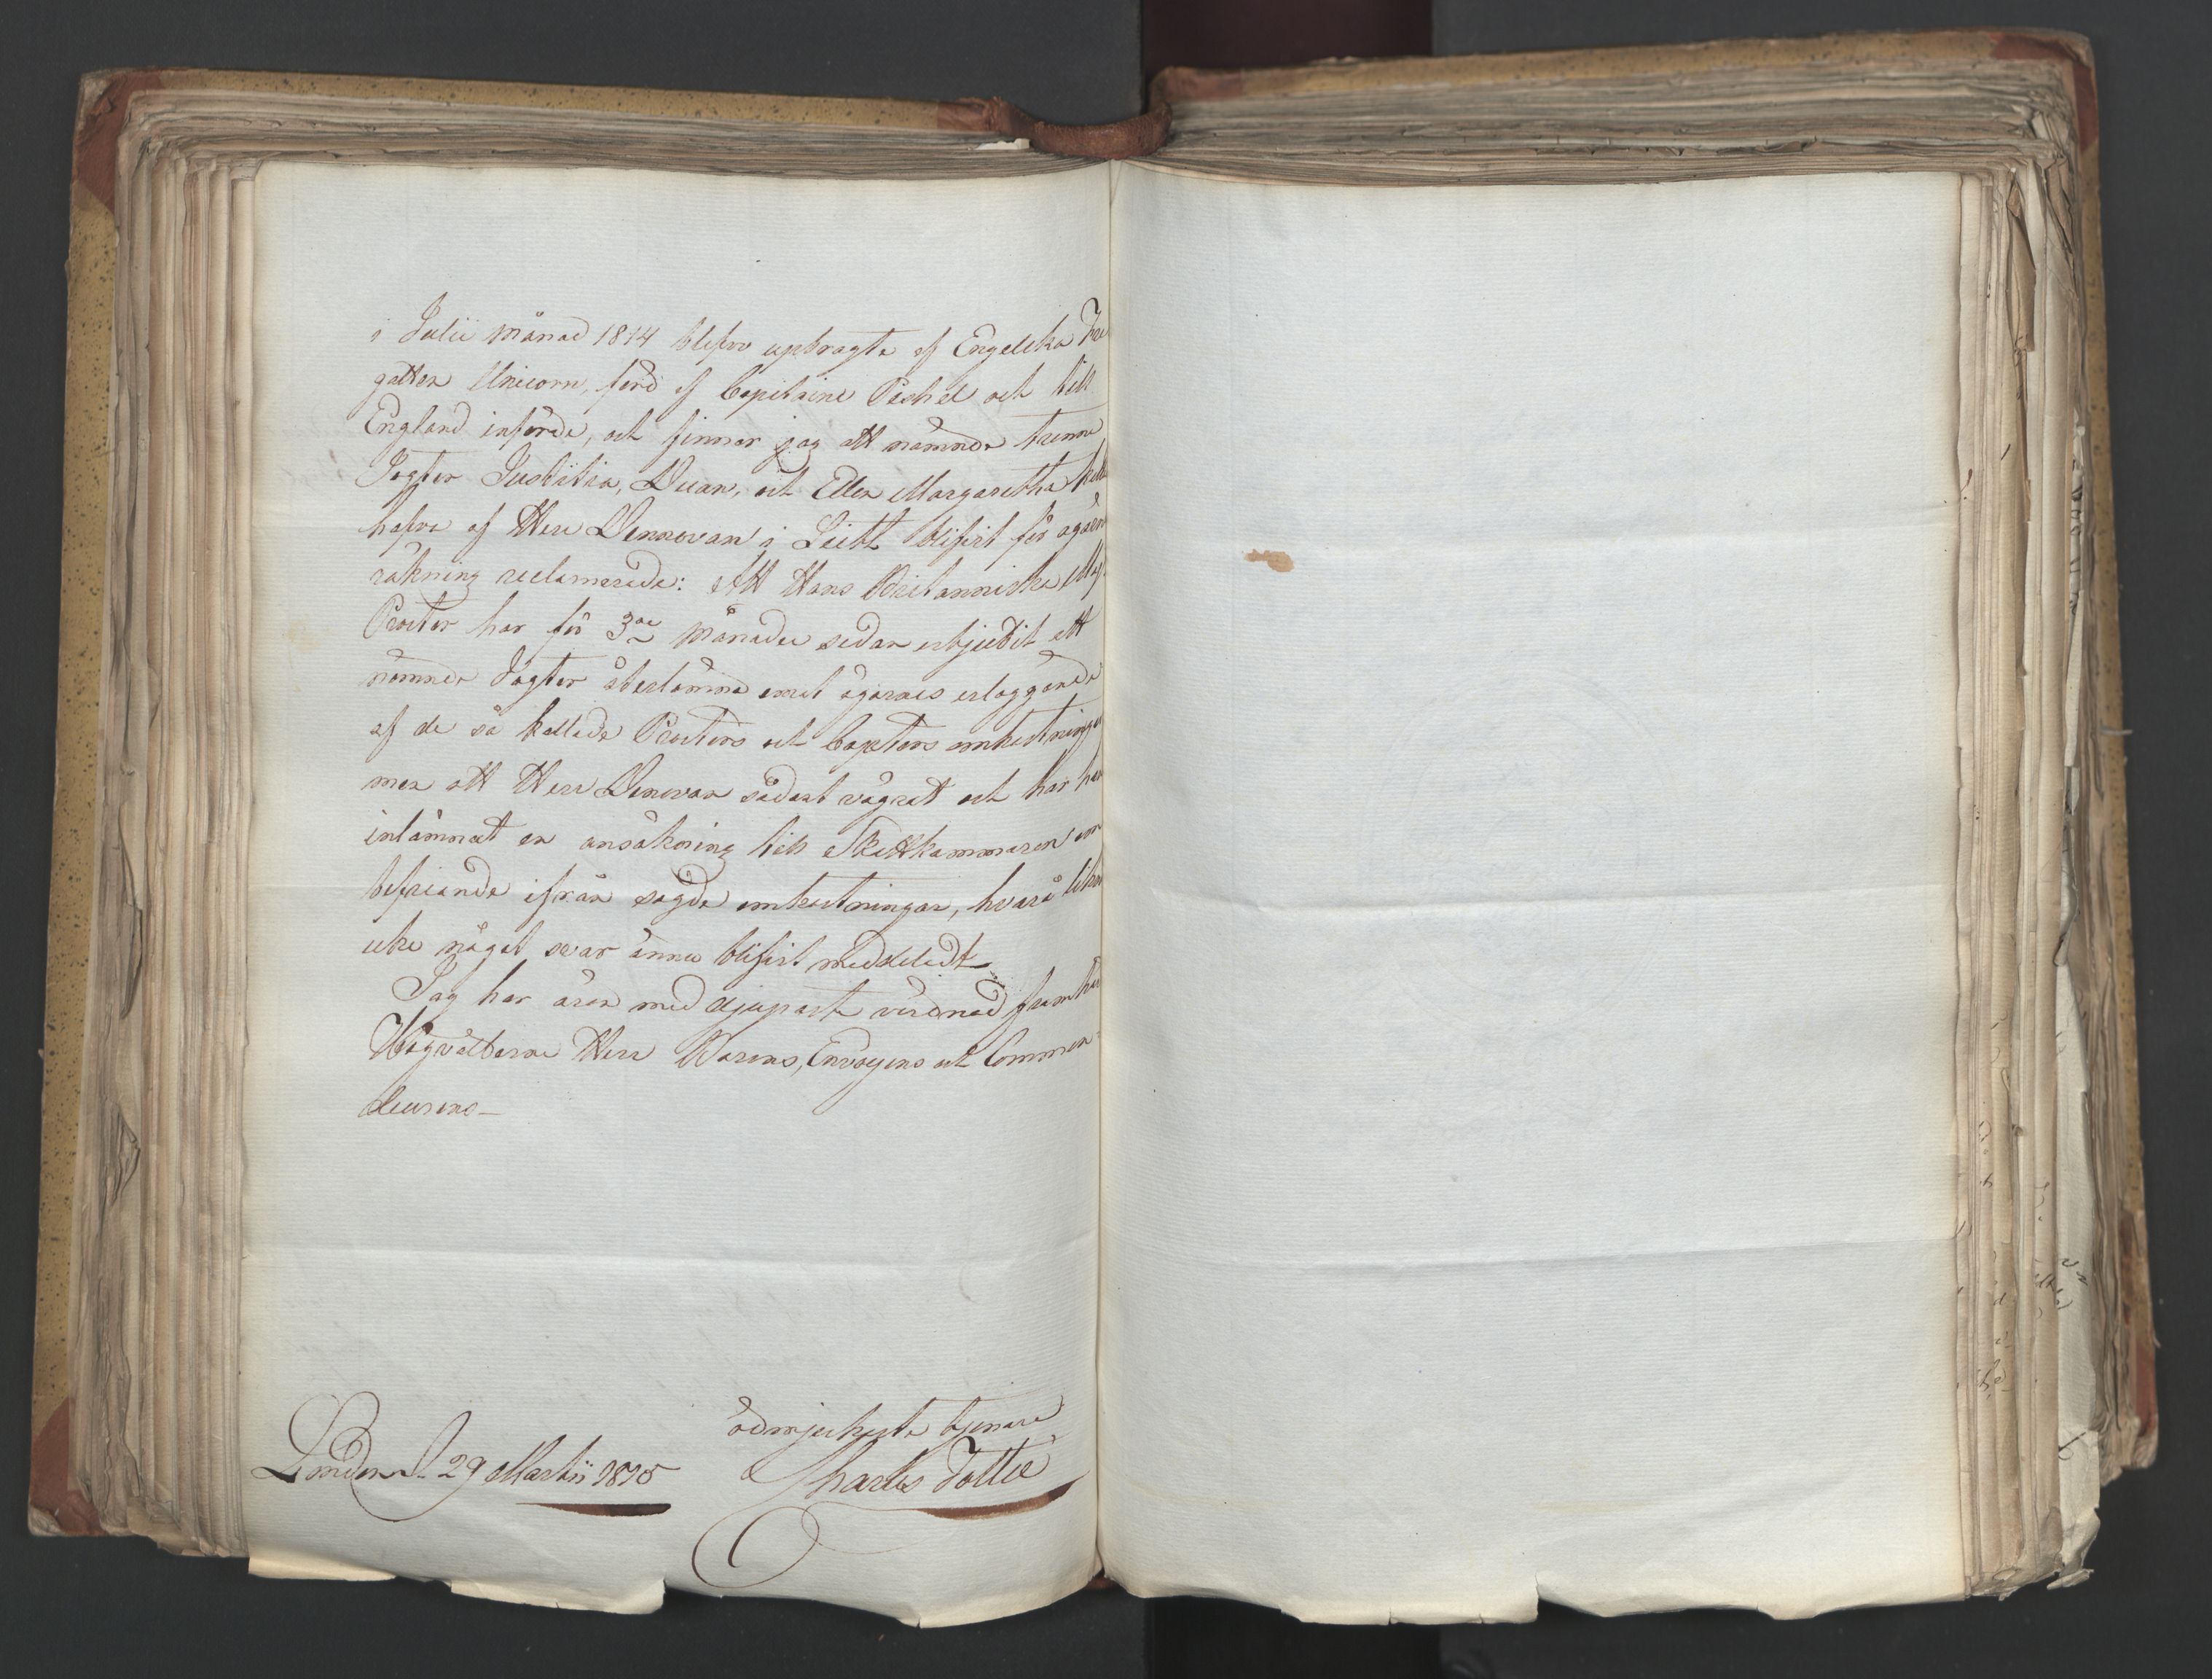 i Julii Månad 1814 blefvo upbragte af Engelska Fre
gatten Unicorn, förd af Capitaine Pechel och till
England införde, och finner jag att nämnde trenne
Jagter Justitia, Dian, och Ellen Margaretha
hafva af Herr Dennovan i Leith blifvit för ägarens
räkning reclamerade: Att Hans Britanniska Maj:
Procter har för 3ne Månader sedan erbjudit att
nämnde Jagter återlämna emot ägarnes erläggande
af de så kallade Proctors och Captors omkostningar
men att Herr Denovan sådant vägrat och har han
inlämnat en ansökning till Skattkammaren om
befriande ifrån sagde omkostningar, hvarå likväl
icke något svar ännu blifvit meddeladt
Jag har äran med djupaste vördnad framhärda
Högvälborne Herr Barons, Envoyens och Commen
deurens
ödmjukaste tjenare
Charles Tottie
London d. 29 Martii 1815